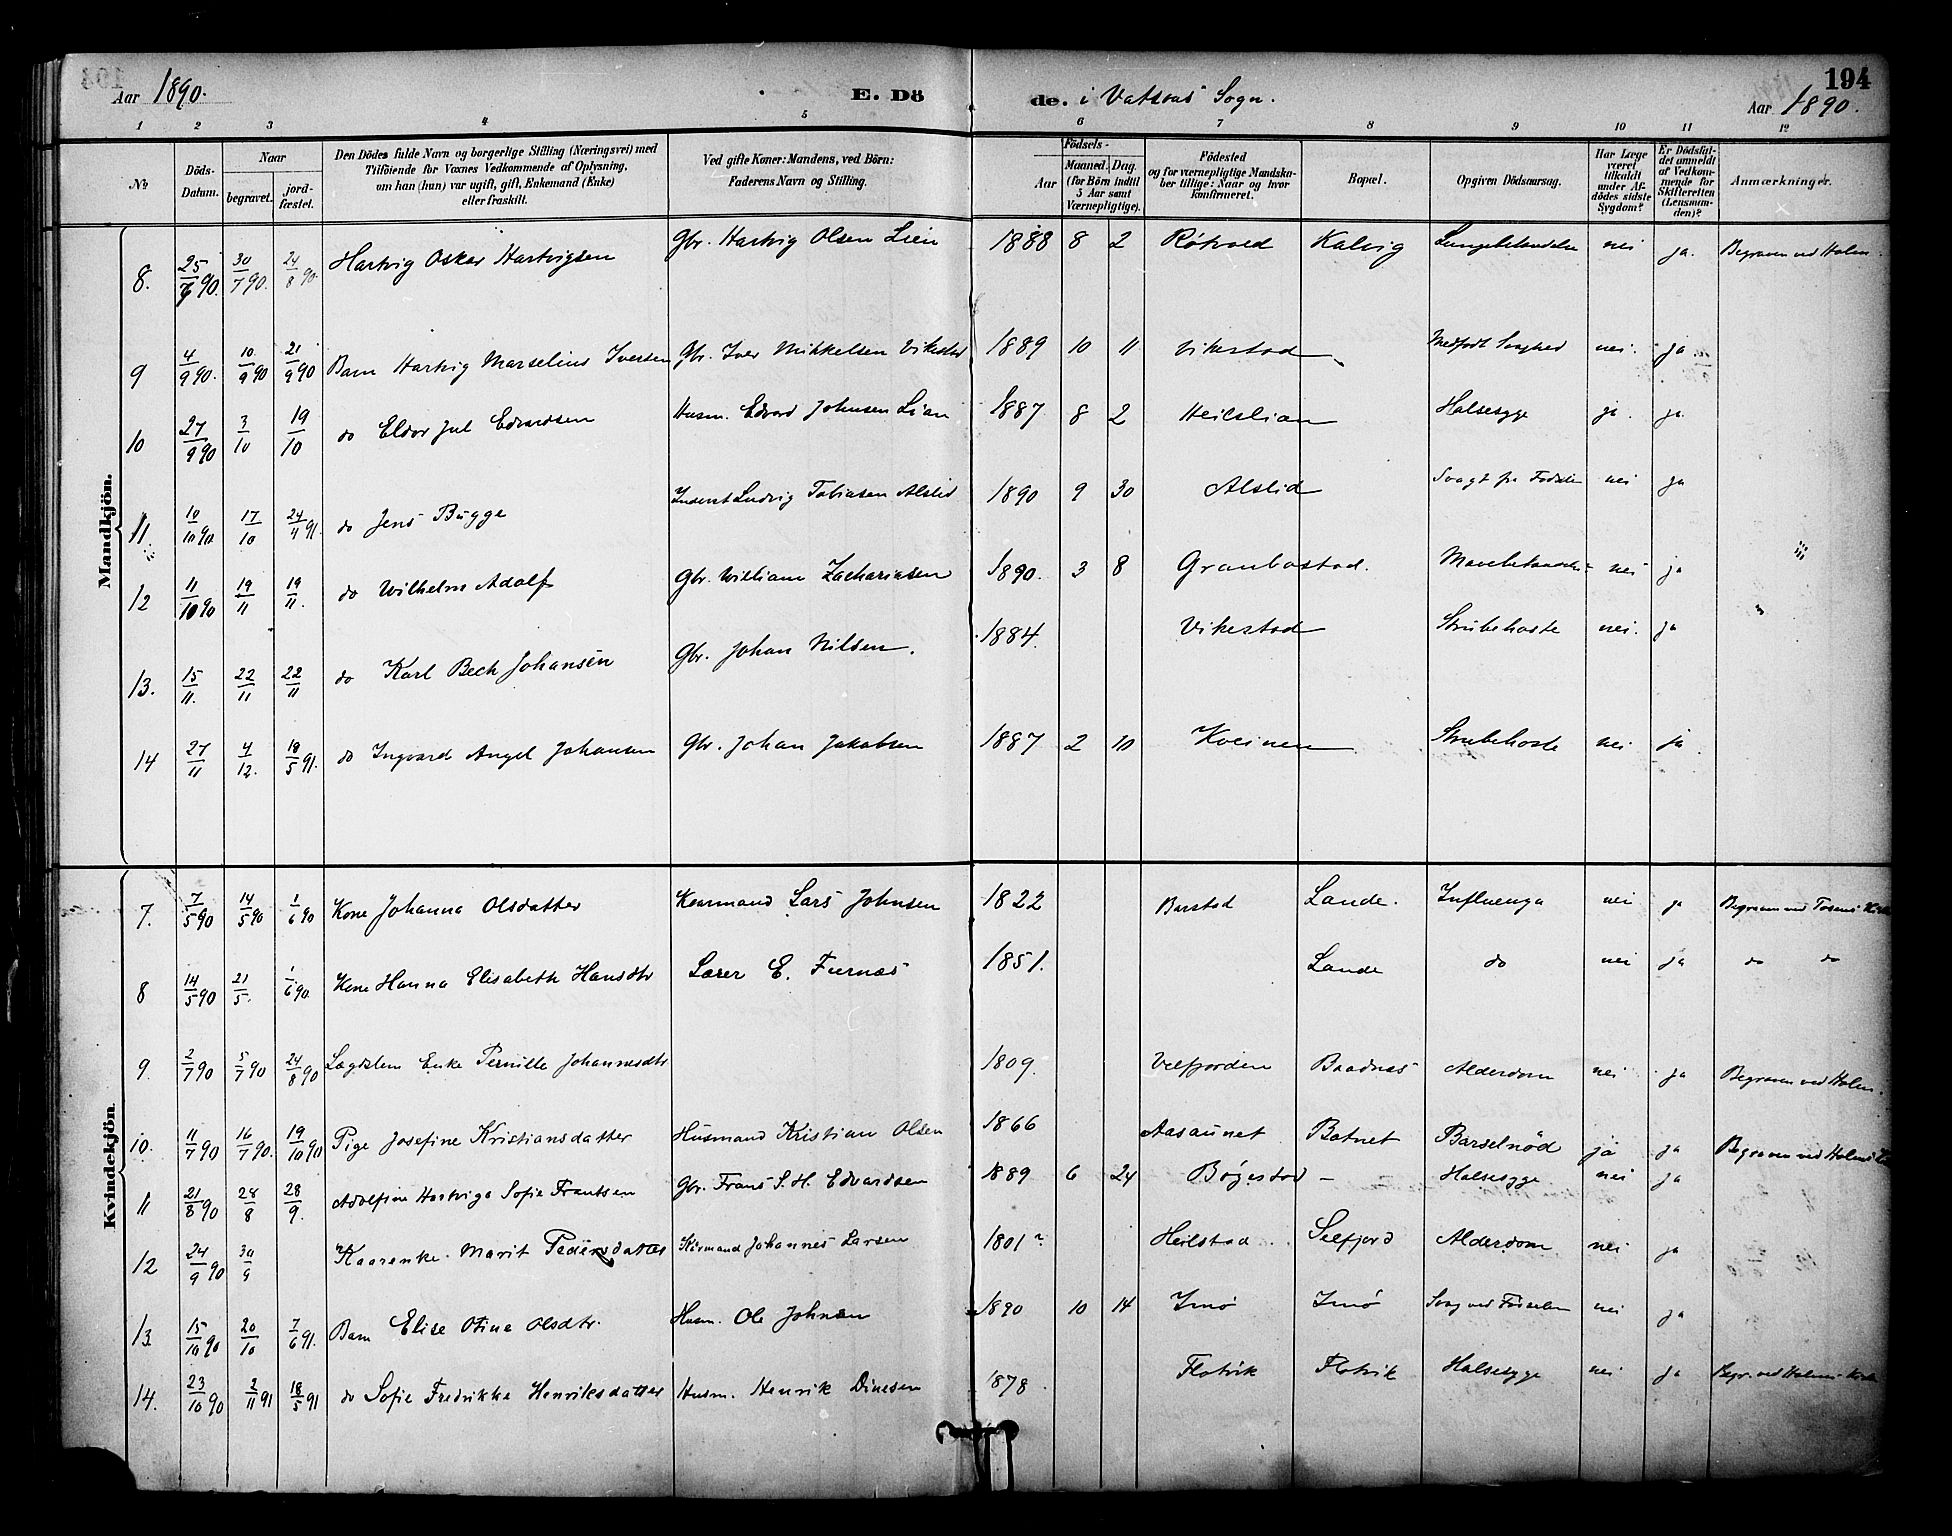 194
Aar 1890. E. Dö de. i Vatsaas Sogn. Aar 1890.
1 2 3 4 5 6 7 8 9 10 11 12
№ Döds-Datum. Naar begravet. jord-fæstet. Den Dödes fulde Navn og borgerlige Stilling (Næringsvei) med Tilföiende for Voxnes Vedkommende af Oplysning, om han (hun) var ugift, gift, Enkemand (Enke) eller fraskilt. Ved gifte Koner: Mandens, ved Börn: Faderens Navn og Stilling. Födsels- Aar Maaned. Dag. (for Börn indtil 5 Aar samt Værnepligtige). Födested og for værnepligtige Mandskaber tillige: Naar og hvor konfirmeret. Bopæl. Opgiven Dödsaarsag. Har Læge været tilkaldt under Afdödes sidste Sygdom? Er Dödsfaldet anmeldt af Vedkommende for Skifteretten (Lensmanden)? Anmærkninger.
Mandkjön.
8. 25/7 90. 30/7 90. 24/8 90. Hartvig Oskar Hartvigsen Gbr. Hartvig Olsen Lien 1888 8 2 Kalvig Lungebetændelse nei ja. Begraven ved Holm.
9 4/9 90. 10/9 90 21/9 90 Barn Hartvig Marselius Iversen Gbr. Iver Mikkelsen Vikestad 1889 10 11 Vikestad Medfødt Svaghed nei. ja
10 27/9 90 3/10 19/10 do Eldor Jul Edvardsen Husm. Edvard Johnsen Lian 1887 8 2 Heilslian Halsesyge ja. ja
11 10/10 90 17/10 24/4 91. do Jens Bugge Inderst Ludvig Tobiasen Alslid 1890 9 30 Alslid Svagt fra Fødselen nei ja
12 11/10 90 19/11 19/11. do Wilhelm Adolf Gbr. William Zachariasen 1890. 3 8 Granbostad. Mavebetændelse nei ja
13. 15/11. 22/11 22/11 do Karl Bech Johansen Gbr. Johan Nilsen. 1884. Vikestad Strubehoste nei. ja
14 27/11 4/12. 18/5 91. do Ingvard Angel Johansen Gbr. Johan Jakobsen 1887 2 10 Kveinen Strubehoste nei ja.
Kvindekjön
7. 7/5 90 14/5 90 1/6 90 Kone Johanna Olsdatter Kaarmand Lars Johnsen 1822 Barstad Lande. Influenza nei ja Begraven ved Tosens Kirke
8 14/5 90 21/5. 1/6 90. Kone Hanna Elisabeth Hansdtr Lærer E. Furnæs 1851. Lande do nei ja do do
9. 2/7 90 5/7 90 24/8 90 Lægdslem Enke Pernille Johannesdtr 1809. Velfjorden Baadnæs Alderdom nei ja Begraven ved Holm.
10. 11/7 90 16/7 90. 19/10 90 Pige Josefine Kristiansdatter Husmand Kristian Olsen 1866 Aasaunet Botnet Barselnød ja ja Begraven ved Holms
11 21/8 90 28/8 28/9. Adolfine Hartviga Sofie Frantsen Gbr. Frans S. H. Edvardsen 1889 6 24 Bøgestad - Halsesyge nei ja
12 24/9 90 30/9 Kaarenke. Marit Pedersdatter Kårmand Johannes Larsen 1801? Heilstad Selfjord Alderdom nei ja
13 15/10 90 20/10 7/6 91. Barn Elise Otine Olsdtr. Husm. Ole Johnsen 1890 10 14 Imø Imø Svag ved Fødselen nei ja
14. 23/10 90 2/11 91 18/5 91 do Sofie Fredrikke Henriksdatter Husm. Henrik Dinesen 1878. Flotvik Flotvik Halsesyge nei ja Begr. ved Holms Kirke